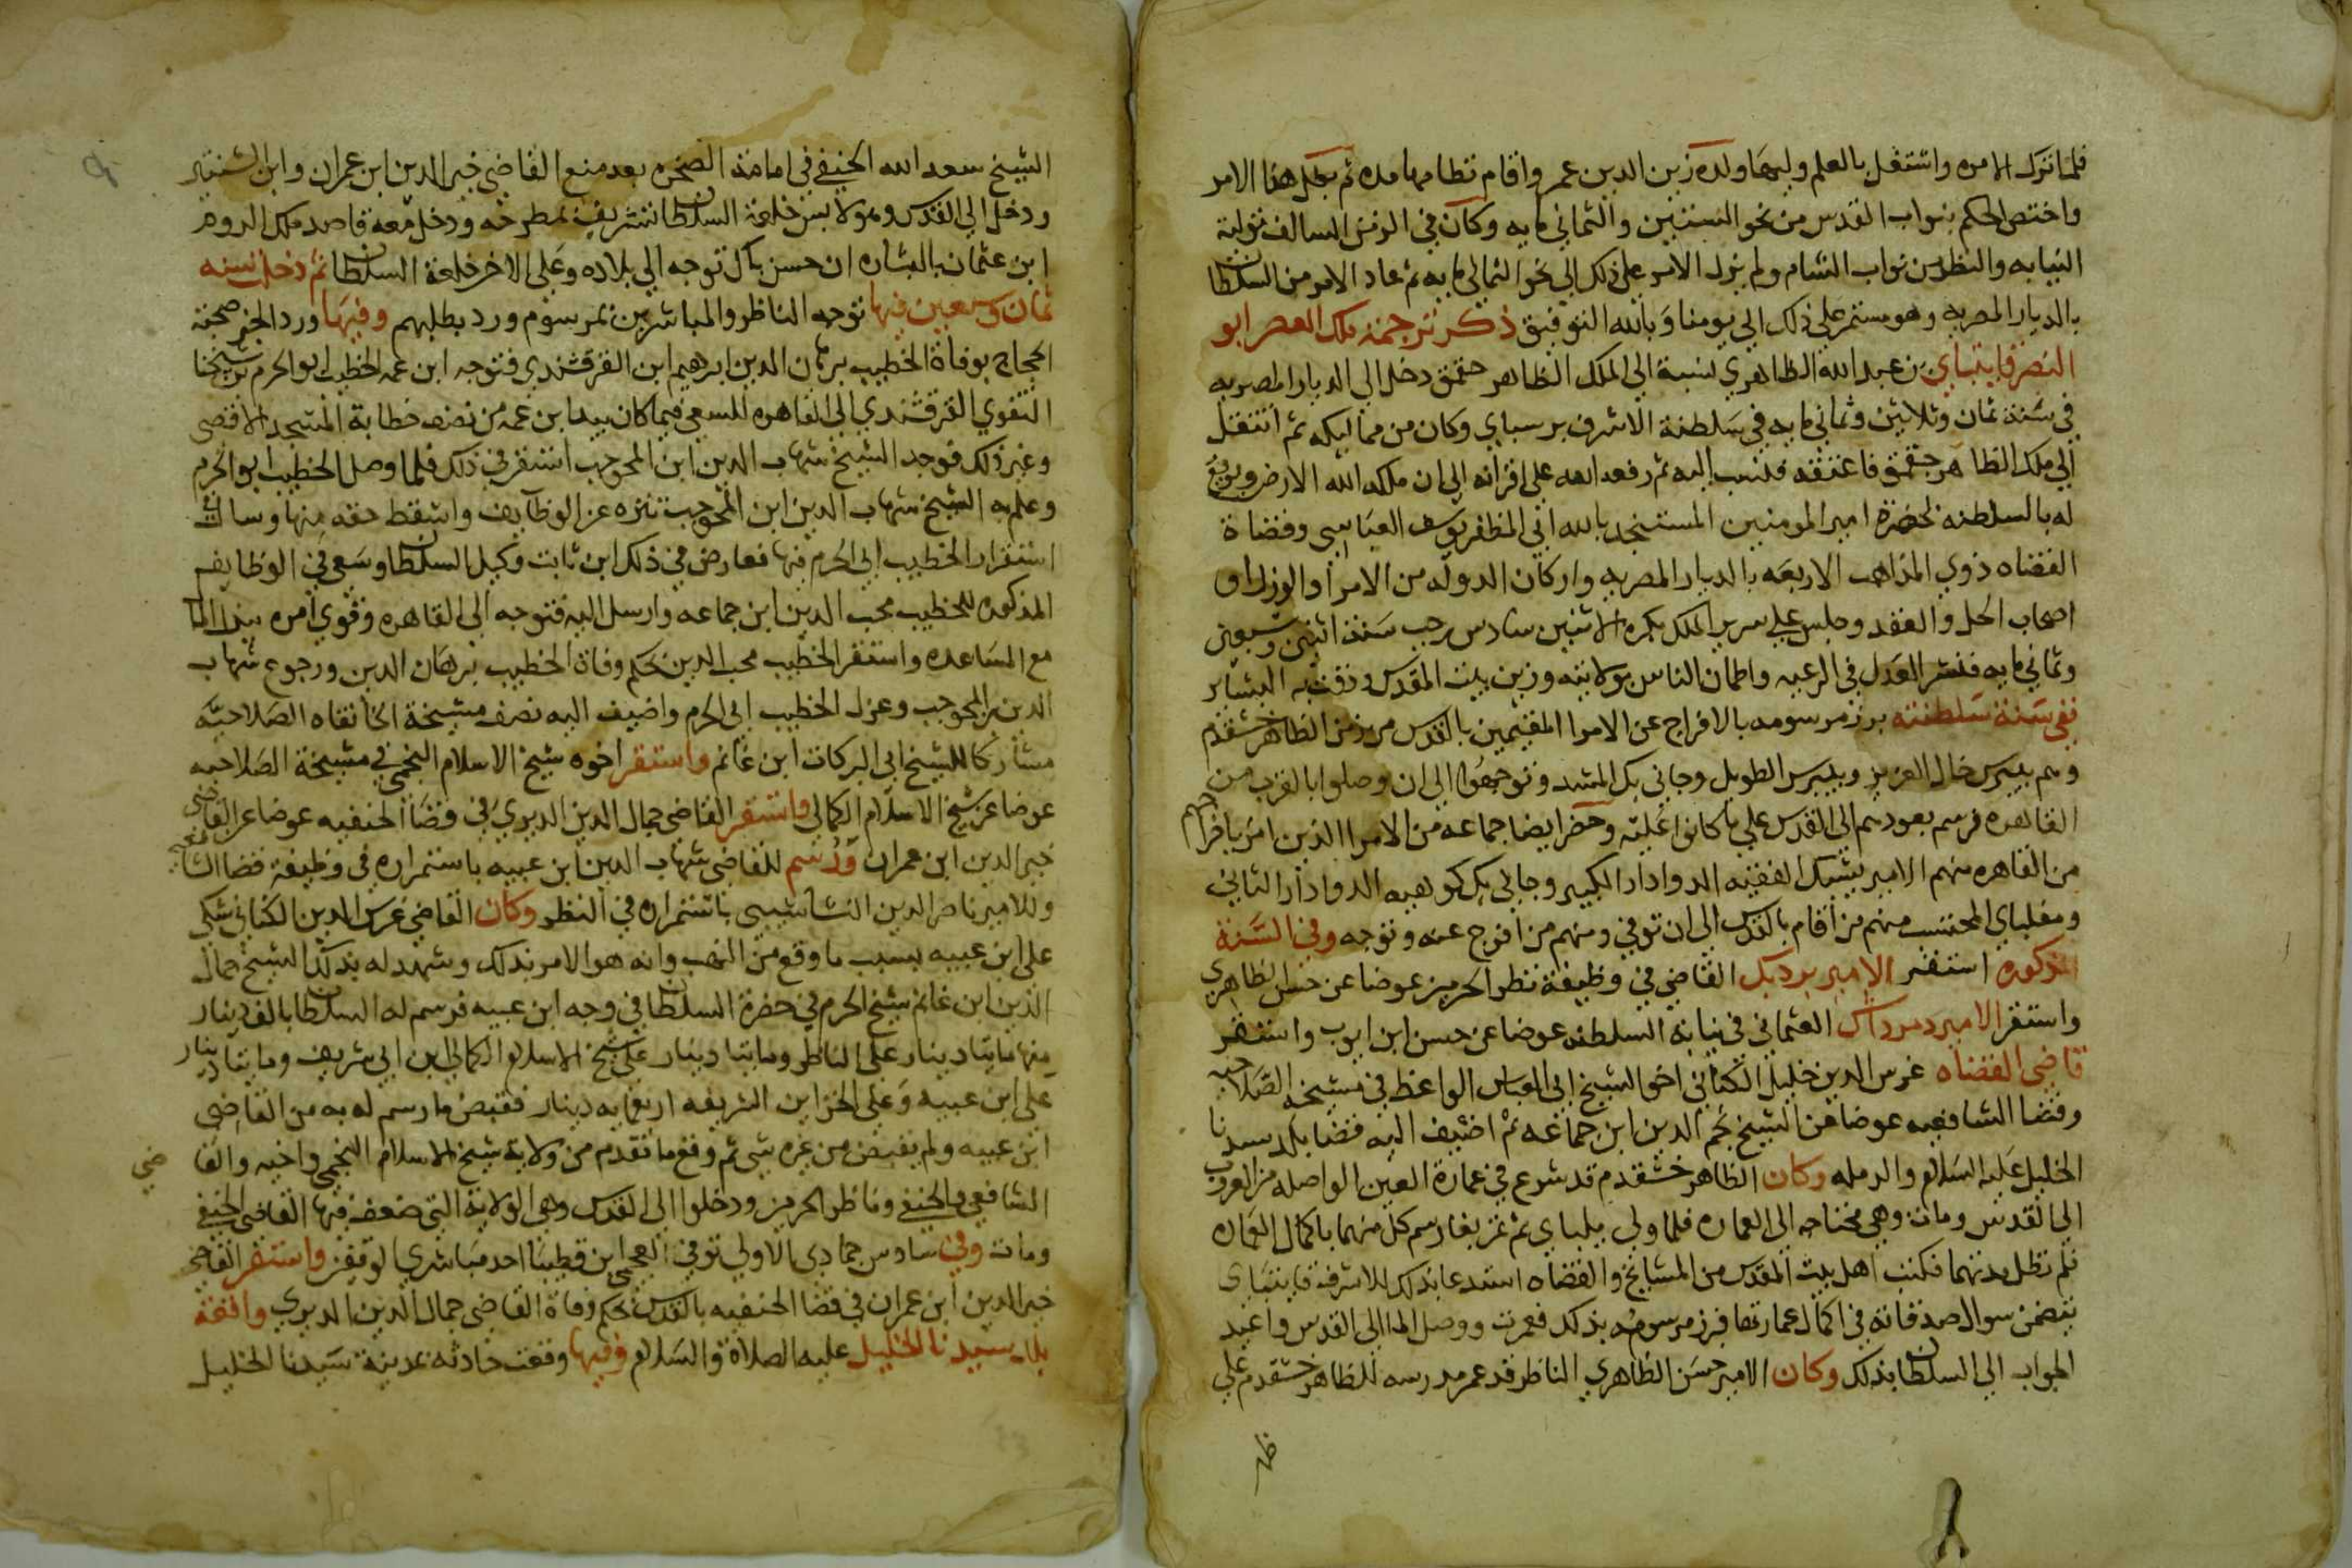 فلما ترك الامره واشتغل بالعلم وليها ولده زين الدين عمر واقام نظامها مده ثم بطل هذا الامر
واختص الحكم بنواب القدس من نحو الستين والثماني مايه وكان في الزمن السالف تولية
النيابه والنظر من نواب الشام ولم يزل الامر علي ذلك الي نحو الثماني مايه ثم عاد الامر من السلطان
بالديار المصريه وهو مستمر علي ذلك الي يومنا وبالله التوفيق ذكر ترجمة ملك العصر ابو
النصر قايتباي بن عبد الله الظاهري نسبة الي الملك الظاهر جقمق دخل الي الديار المصريه
في سنة ثمان وثلاثين وثماني مايه في سلطنة الاشرف برسباي وكان من مماليكه ثم انتقل
الي ملك الظاهر جقمق فاعتقه فنسب اليه ثم رفعه الله علي اقرانه الي ان ملكه الله الارض وبويع
له بالسلطنه بحضرة امير المومنين المستنجد بالله ابي المظفر يوسف العباسي وقضاة
القضاه ذوي المذاهب الاربعه بالديار المصريه واركان الدوله من الامرا والوزرا و
اصحاب الحل والعقد وجلس علي سرير الملك بكره الاثنين سادس رجب سنة اثنين وسبعين
وثماني مايه فنشر العدل في الرعيه واطمان الناس بولايته وزين بيت المقدس ودقت به البشاير
ففي سنة سلطنته برز مرسومه بالافراج عن الامرا المقيمين بالقدس من زمن الظاهر خشقدم
وهم بيبرس خال العزيز وبيبرس الطويل وجاني بك المشد وتوجهوا الي ان وصلوا بالقرب من
القاهره فرسم بعودهم الي القدس علي ما كانوا عليه وحضر ايضا جماعه من الامرا الذين امر باخراجهم
من القاهره منهم الامير يشبك الفقيه الدوادار الكبير وجاني بك كوهيه الدوادار الثاني
ومغلباي المحتسب منهم من اقام بالقدس الي ان توفي ومنهم من افرج عنه وتوجه وفي السنة
المذكوره استقر الامير بردبك القاضي في وظيفة نظر الحرمين عوضا عن حسن الظاهري
واستقر الامير دمرداش العثماني في نيابة السلطنه عوضا عن حسن ابن ايوب واستقر
قاضي القضاه غرس الدين خليل الكناني اخو الشيخ ابي العباس الواعظ في مشيخه الصلاحيه
وقضا الشافعيه عوضا عن الشيخ نجم الدين ابن جماعه ثم اضيف اليه قضا بلد سيدنا
الخليل عليه السلام والرمله وكان الظاهر خشقدم قد شرع في عمارة العين الواصله من العروب
الي القدس ومات وهي محتاجه الي العماره فلما ولي يلباي ثم تمربغا رسم كل منهما باكمال العماره
فلم تطل مدتهما فكتب اهل بيت المقدس من المشايخ والقضاه استدعا بذلك للاشرف قايتباي
يتضمن سوال صدقاته في اكمال عمارتها فبرز مرسومه بذلك فعمرت ووصل الما الي القدس واعيد
الجواب الي السلطان بذلك وكان الامير حسن الظاهري الناظر قد عمر مدرسه للظاهر خشقدم علي
الشيخ سعد الله الحنفي في امامة الصخره بعد منع القاضي خير الدين ابن عمران وابن
ودخل الي القدس وهو لابس خلعة السلطان تشريف بمطرحه ودخل معه قاصد ملك الروم
ابن عثمان بالبشاره ان حسن باك توجه الي بلاده وعلي الاخر خلعة السلطان ثم دخل سنه
ثمان وسبعين فيها توجه الناظر والمباشرين بمرسوم ورد بطلبهم وفيها ورد الخبر صحبة
الحجاج بوفاة الخطيب برهان الدين ابرهيم ابن القرقشندي فتوجه ابن عمه الخطيب ابو الحرم بن شيخنا
التقوي القرقشندي الي القاهره للسعي فيما كان بيد ابن عمه من نصف خطابة المسجد الاقصي
وغير ذلك فوجد الشيخ شهاب الدين ابن المحوجب استقر في ذلك فلما وصل الخطيب ابو الحرم
وعلم به الشيخ شهاب الدين ابن المحوجب تنزه عن الوظايف واسقط حقه منها وسال
استقرار الخطيب ابي الحرم فيها فعارض في ذلك ابن ثابت وكيل السلطان وسعي في الوظايف
المذكوره للخطيب محب الدين ابن جماعه وارسل اليه فتوجه الي القاهره وقوي امره ببذل المال
مع المساعده واستقر الخطيب محب الدين بحكم وفاة الخطيب برهان الدين ورجوع شهاب
الدين بن المحوجب وعزل الخطيب ابي الحرم واضيف اليه نصف مشيخة الخانقاه الصلاحيه
مشاركا للشيخ ابي البركات ابن غانم واستقر اخوه شيخ الاسلام النجمي في مشيخة الصلاحيه
عوضا عن شيخ الاسلام الكمالي واستقر القاضي جمال الدين الديري في قضا الحنفيه عوضا عن القاضي
خير الدين ابن عمران ورسم للقاضي شهاب الدين ابن عبيه باستمراره في وظيفة قضا الشافعيه
وللامير ناصر الدين النشاشيبي باستمراره في النظر وكان القاضي غرس الدين الكناني شكي
علي ابن عبيه بسبب ما وقع من النهب وانه هو الامر بذلك وشهد له بذلك الشيخ جمال
الدين ابن غانم شيخ الحرم في حضرة السلطان في وجه ابن عبيه فرسم له السلطان بالف دينار
منها مايتا دينار علي الناظر ومايتا دينار علي شيخ الاسلام الكمالي ابن ابي شريف ومايتا دينار
علي ابن عبيه وعلي الخزاين الشريفه اربعمايه دينار فقبض ما رسم له به من القاضي
ابن عبيه ولم يقبض من غيره شي ثم وقع ما تقدم من ولاية شيخ الاسلام النجمي واخيه والقاضي
الشافعي والحنفي وناظر الحرمين ودخلوا الي القدس وهي الولاية التي ضعف فيها القاضي الحنفي
ومات وفي سادس جمادي الاولي توفي العجمي ابن قطيبا احد مباشري الوقفين واستقر القاضي
خير الدين ابن عمران في قضا الحنفيه بالقدس بحكم وفاة القاضي جمال الدين الديري واقعة
بلد سيدنا الخليل عليه الصلاة والسلام وفيها وقعت حادثه بمدينة سيدنا الخليل